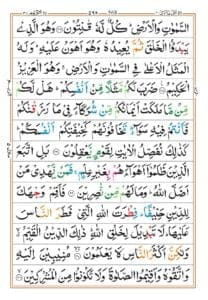 السَّمٰوٰتِ وَالْاَرْضِ ؕ كُلٌّ لَّهٗ قٰنِتُوْنَ ۞ وَهُوَ الَّذِيْ
يَبْدَؤُا الْخَلْقَ ثُمَّ يُعِيْدُهٗ وَهُوَ اَهْوَنُ عَلَيْهِ ؕ وَلَهُ
الْمَثَلُ الْاَعْلٰى فِي السَّمٰوٰتِ وَالْاَرْضِ ۚ وَهُوَ الْعَزِيْزُ
الْحَكِيْمُ ۞ ضَرَبَ لَكُمْ مَّثَلًا مِّنْ اَنْفُسِكُمْ ؕ هَلْ لَّكُمْ
مِّنْ مَّا مَلَكَتْ اَيْمَانُكُمْ مِّنْ شُرَكَآءَ فِيْ مَا رَزَقْنٰكُمْ
فَاَنْتُمْ فِيْهِ سَوَآءٌ تَخَافُوْنَهُمْ كَخِيْفَتِكُمْ اَنْفُسَكُمْ ؕ
كَذٰلِكَ نُفَصِّلُ الْاٰيٰتِ لِقَوْمٍ يَّعْقِلُوْنَ ۞ بَلِ اتَّبَعَ
الَّذِيْنَ ظَلَمُوْۤا اَهْوَآءَهُمْ بِغَيْرِ عِلْمٍ ۚ فَمَنْ يَّهْدِيْ مَنْ
اَضَلَّ اللّٰهُ ؕ وَمَا لَهُمْ مِّنْ نّٰصِرِيْنَ ۞ فَاَقِمْ وَجْهَكَ
لِلدِّيْنِ حَنِيْفًا ؕ فِطْرَتَ اللّٰهِ الَّتِيْ فَطَرَ النَّاسَ
عَلَيْهَا ؕ لَا تَبْدِيْلَ لِخَلْقِ اللّٰهِ ؕ ذٰلِكَ الدِّيْنُ الْقَيِّمُ ۙ
وَلٰكِنَّ اَكْثَرَ النَّاسِ لَا يَعْلَمُوْنَ ۞ مُنِيْبِيْنَ اِلَيْهِ
وَاتَّقُوْهُ وَاَقِيْمُوا الصَّلٰوةَ وَلَا تَكُوْنُوْا مِنَ الْمُشْرِكِيْنَ